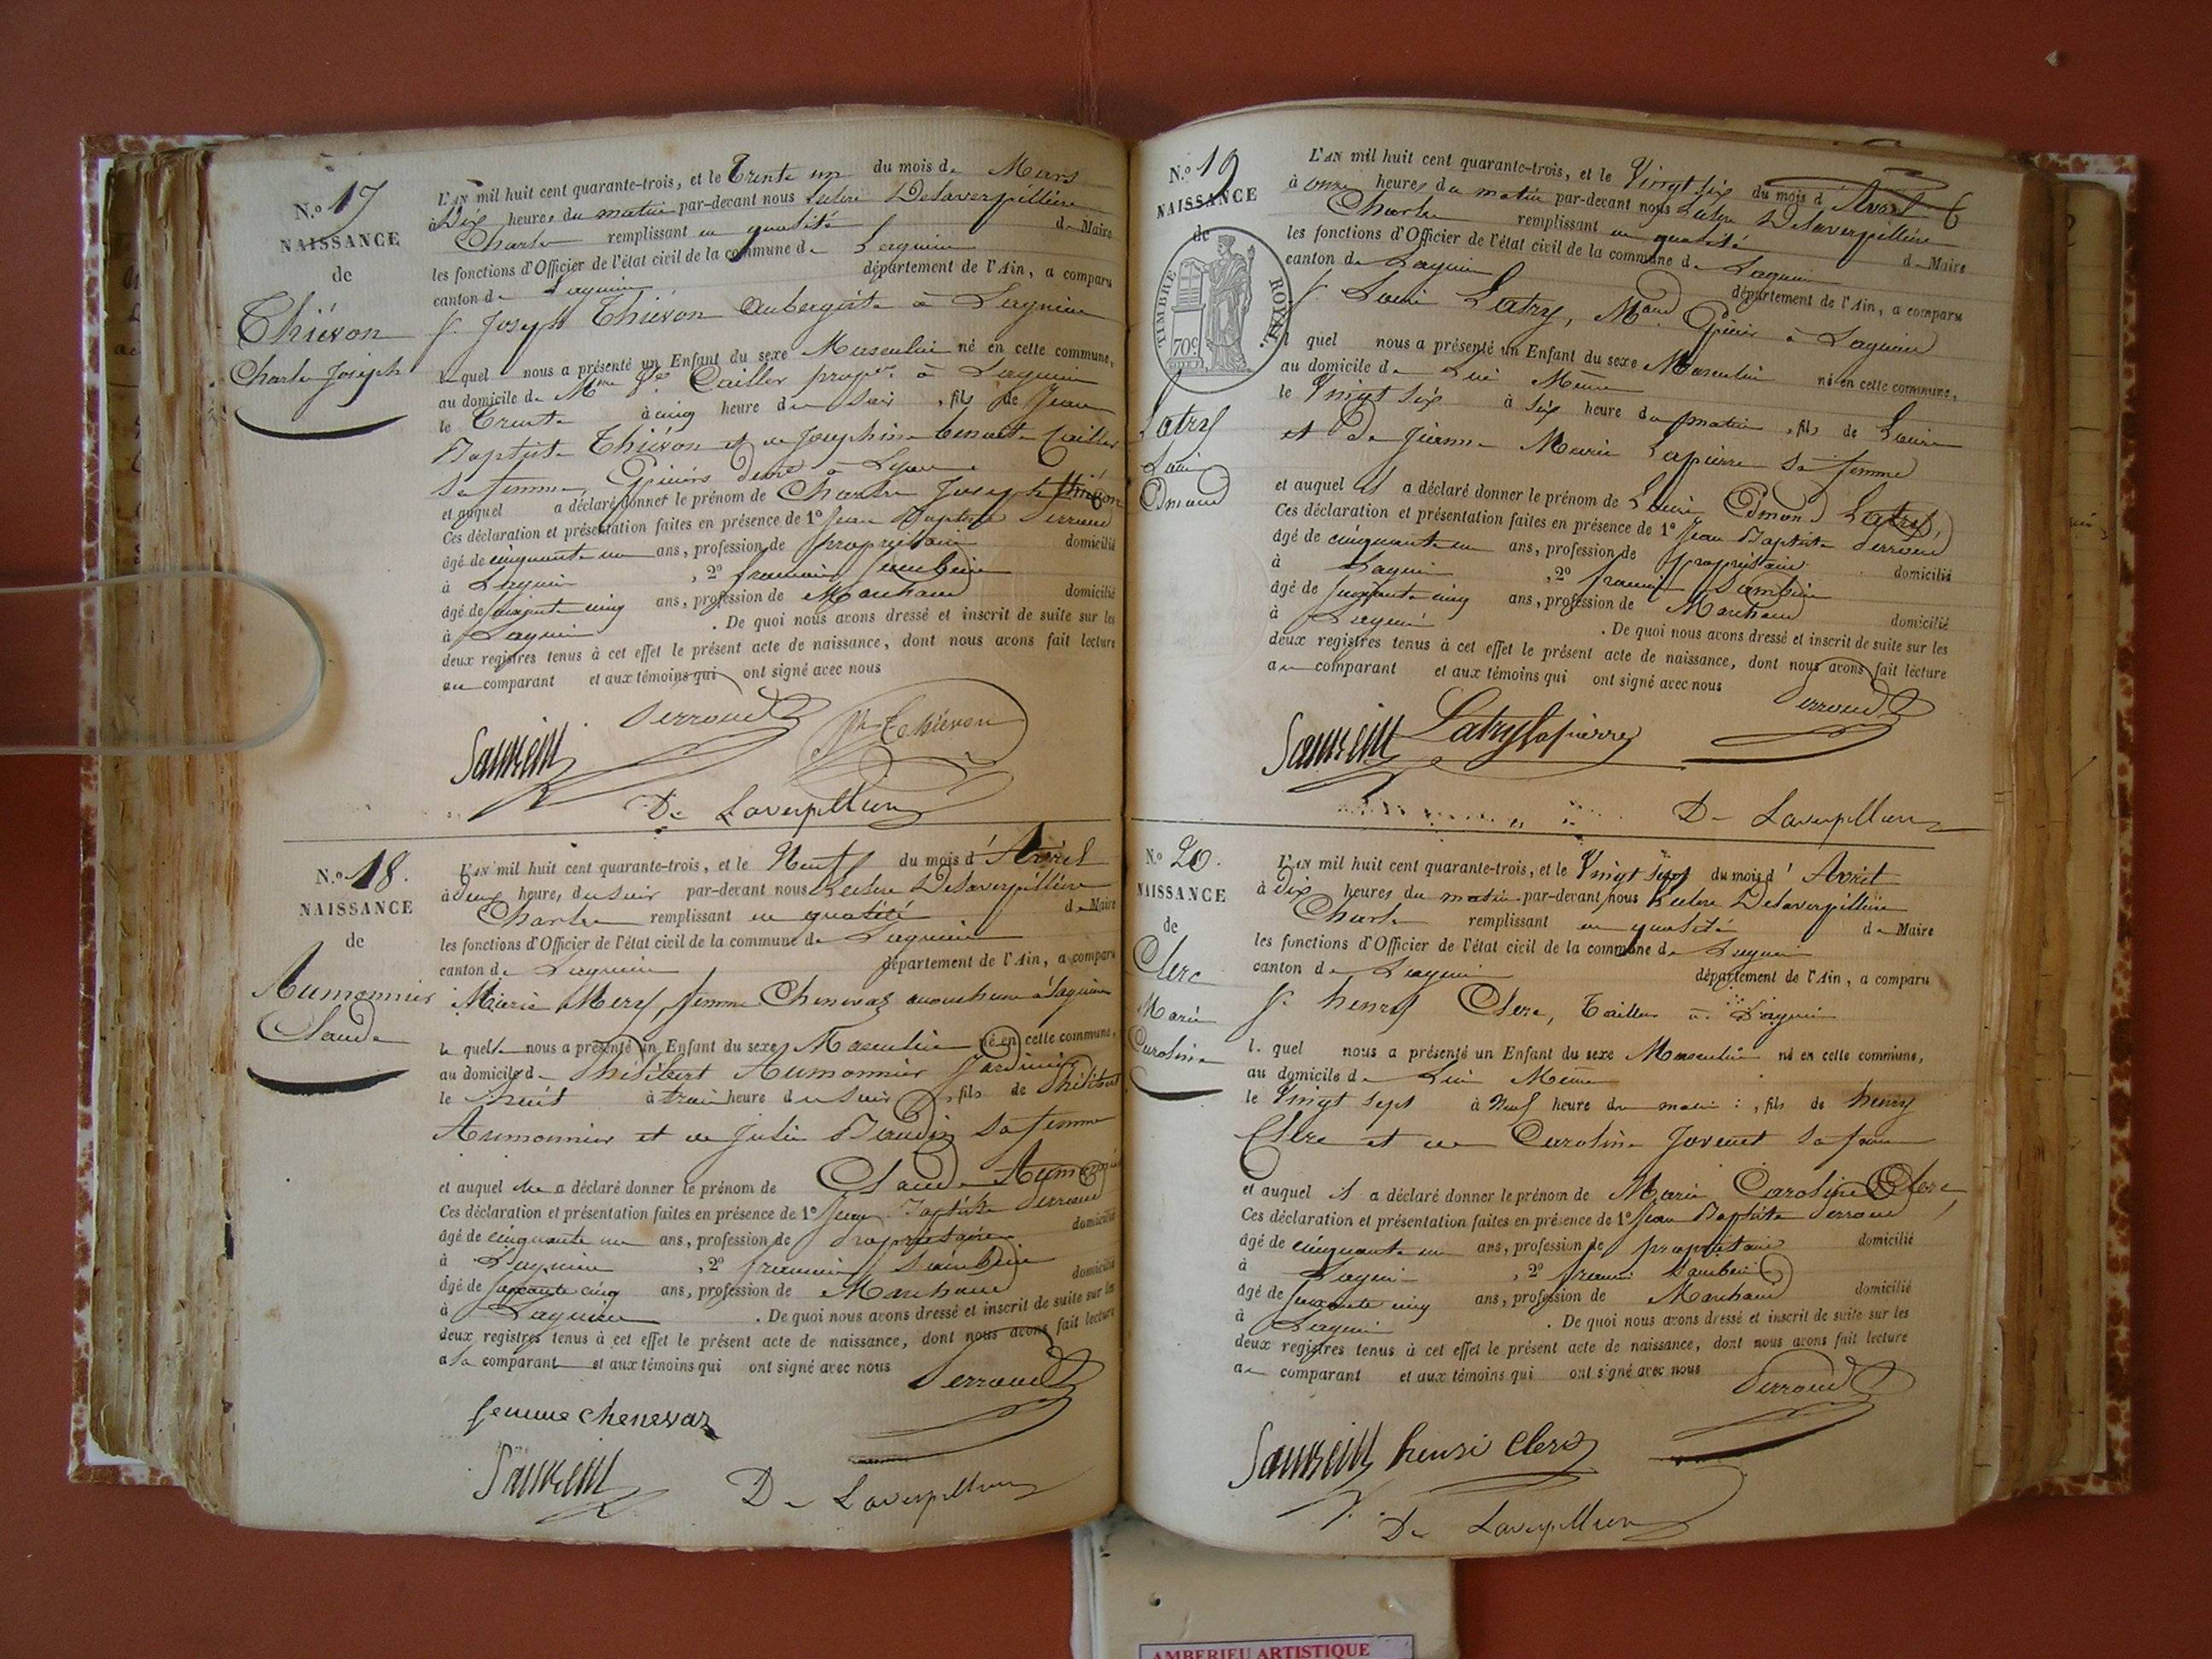 N.o 17
NAISSANCE
de
Thiévon
Charles Joseph
L'AN mil huit cent quarante-trois, et le Trente un du mois de Mars
à Dix heures du matin par-devant nous Leclerc Delaverpillière
Charles remplissant en qualité de Maire
les fonctions d'Officier de l'état civil de la commune de Lagnieu
canton de Lagnieu département de l'Ain, a comparu
Sr. Joseph Thiévon aubergiste à Lagnieu
lequel nous a présenté un Enfant du sexe Masculin né en cette commune,
au domicile de Mme Cailler propre à Lagnieu
le Trente à cinq heure du soir, fils de Jean
Baptiste Thiévon et de Joséphine Benoite Cailler
sa femme Epiciers demt à Lyon
et auquel a déclaré donner le prénom de Charles Joseph Thiévon
Ces déclaration et présentation faites en présence de 1º Jean Baptiste Perroud
âgé de cinquante un ans, profession de propriétaire domicilié
à Lagnieu, 2º
âgé de soixante cinq ans, profession de Marchand domicilié
à Lagnieu. De quoi nous avons dressé et inscrit de suite sur les
deux registres tenus à cet effet le présent acte de naissance, dont nous avons fait lecture
au comparant et aux témoins qui ont signé avec nous
Perroud Thiévon
De Laverpilliere
N.o 18.
NAISSANCE
de
Aumonnier
Claude
L'AN mil huit cent quarante-trois, et le Neuf du mois d'Avril
à deux heures du soir par-devant nous Leclerc Delaverpillière
Charles remplissant en qualité de Maire
les fonctions d'Officier de l'état civil de la commune de Lagnieu
canton de Lagnieu département de l'Ain, a comparu
Marie Mery, femme Chenevaz accoucheuse à Lagnieu
laquelle nous a présenté un Enfant du sexe Masculin né en cette commune,
au domicile de Philibert Aumonnier Jardinier
le huit à trois heure du soir, fils de Philibert
Aumonnier et de Julie sa femme
et auquel elle a déclaré donner le prénom de Claude Aumonnier
Ces déclaration et présentation faites en présence de 1º Jean Baptiste Perroud
âgé de cinquante un ans, profession de propriétaire domicilié
à Lagnieu, 2º
âgé de soixante cinq ans, profession de Marchand domicilié
à Lagnieu. De quoi nous avons dressé et inscrit de suite sur les
deux registres tenus à cet effet le présent acte de naissance, dont nous avons fait lecture
à la comparant et aux témoins qui ont signé avec nous
Perroud
femme chenevaz
De Laverpilliere
N.o 19
NAISSANCE
de
TIMBRE ROYAL.
70c
Latry
Louis
Edmond
L'AN mil huit cent quarante-trois, et le Vingt six du mois d'Avril
à onze heures du matin par-devant nous Leclerc Delaverpillière
Charles remplissant en qualité de Maire
les fonctions d'Officier de l'état civil de la commune de Lagnieu
canton de Lagnieu département de l'Ain, a comparu
Sr. Louis Latry, Mand Epicier à Lagnieu
lequel nous a présenté un Enfant du sexe Masculin né en cette commune,
au domicile de Lui Même
le Vingt six à six heure du matin, fils de Louis
et de Jeanne Marie Lapierre sa femme
et auquel il a déclaré donner le prénom de Louis Edmond Latry,
Ces déclaration et présentation faites en présence de 1º Jean Baptiste Perroud
âgé de cinquante un ans, profession de propriétaire domicilié
à Lagnieu, 2º
âgé de soixante cinq ans, profession de Marchand domicilié
à Lagnieu. De quoi nous avons dressé et inscrit de suite sur les
deux registres tenus à cet effet le présent acte de naissance, dont nous avons fait lecture
au comparant et aux témoins qui ont signé avec nous
Perroud
Latry Lapierre
De Laverpilliere
N.o 20.
NAISSANCE
de
Clerc
Marie
Caroline
L'AN mil huit cent quarante-trois, et le Vingt sept du mois d'Avril
à dix heures du matin par-devant nous Leclerc Delaverpillière
Charles remplissant en qualité de Maire
les fonctions d'Officier de l'état civil de la commune de Lagnieu
canton de Lagnieu département de l'Ain, a comparu
Sr. henry Clerc, Tailleur à Lagnieu
lequel nous a présenté un Enfant du sexe Masculin né en cette commune,
au domicile de Lui Même
le Vingt sept à Neuf heure du matin, fils de henry
Clerc et de Caroline Jovenet sa femme
et auquel il a déclaré donner le prénom de Marie Caroline Clerc,
Ces déclaration et présentation faites en présence de 1º Jean Baptiste Perroud
âgé de cinquante un ans, profession de propriétaire domicilié
à Lagnieu, 2º
âgé de soixante cinq ans, profession de Marchand domicilié
à Lagnieu. De quoi nous avons dressé et inscrit de suite sur les
deux registres tenus à cet effet le présent acte de naissance, dont nous avons fait lecture
au comparant et aux témoins qui ont signé avec nous
Perroud
henri Clerc
De Laverpilliere
AMBERIEU ARTISTIQUE